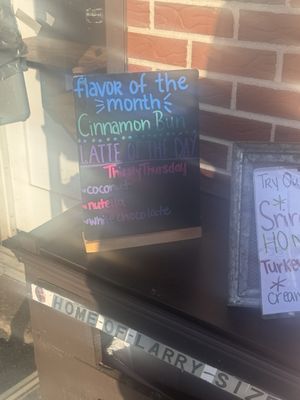 flavor of the
month
Cinnamon Bun
LATTE OF THE DAY
Thirsty Thursday
coconut
nutella
white chocolate
Try Ou
HON
Turke
Crean
HOME-OF-LARRY-SIZE